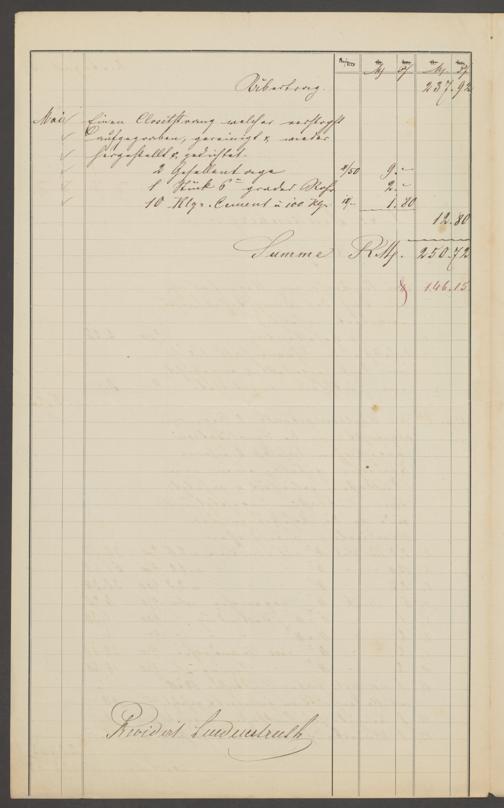 Übertrag. 237.92
Mai Einen Closetstrang welcher verstopft
aufgegraben, gereinigt & wieder
hergestellt & gedichtet.
2 Gesellentage 4/50 9.–
1 Stück 6" grades Rohr 2.–
10 Klgr. Cement à 100 Kgr. 18,– 1.80
12.80
Summe RMk. 250.72
146.15
Revidirt Lindenstruth